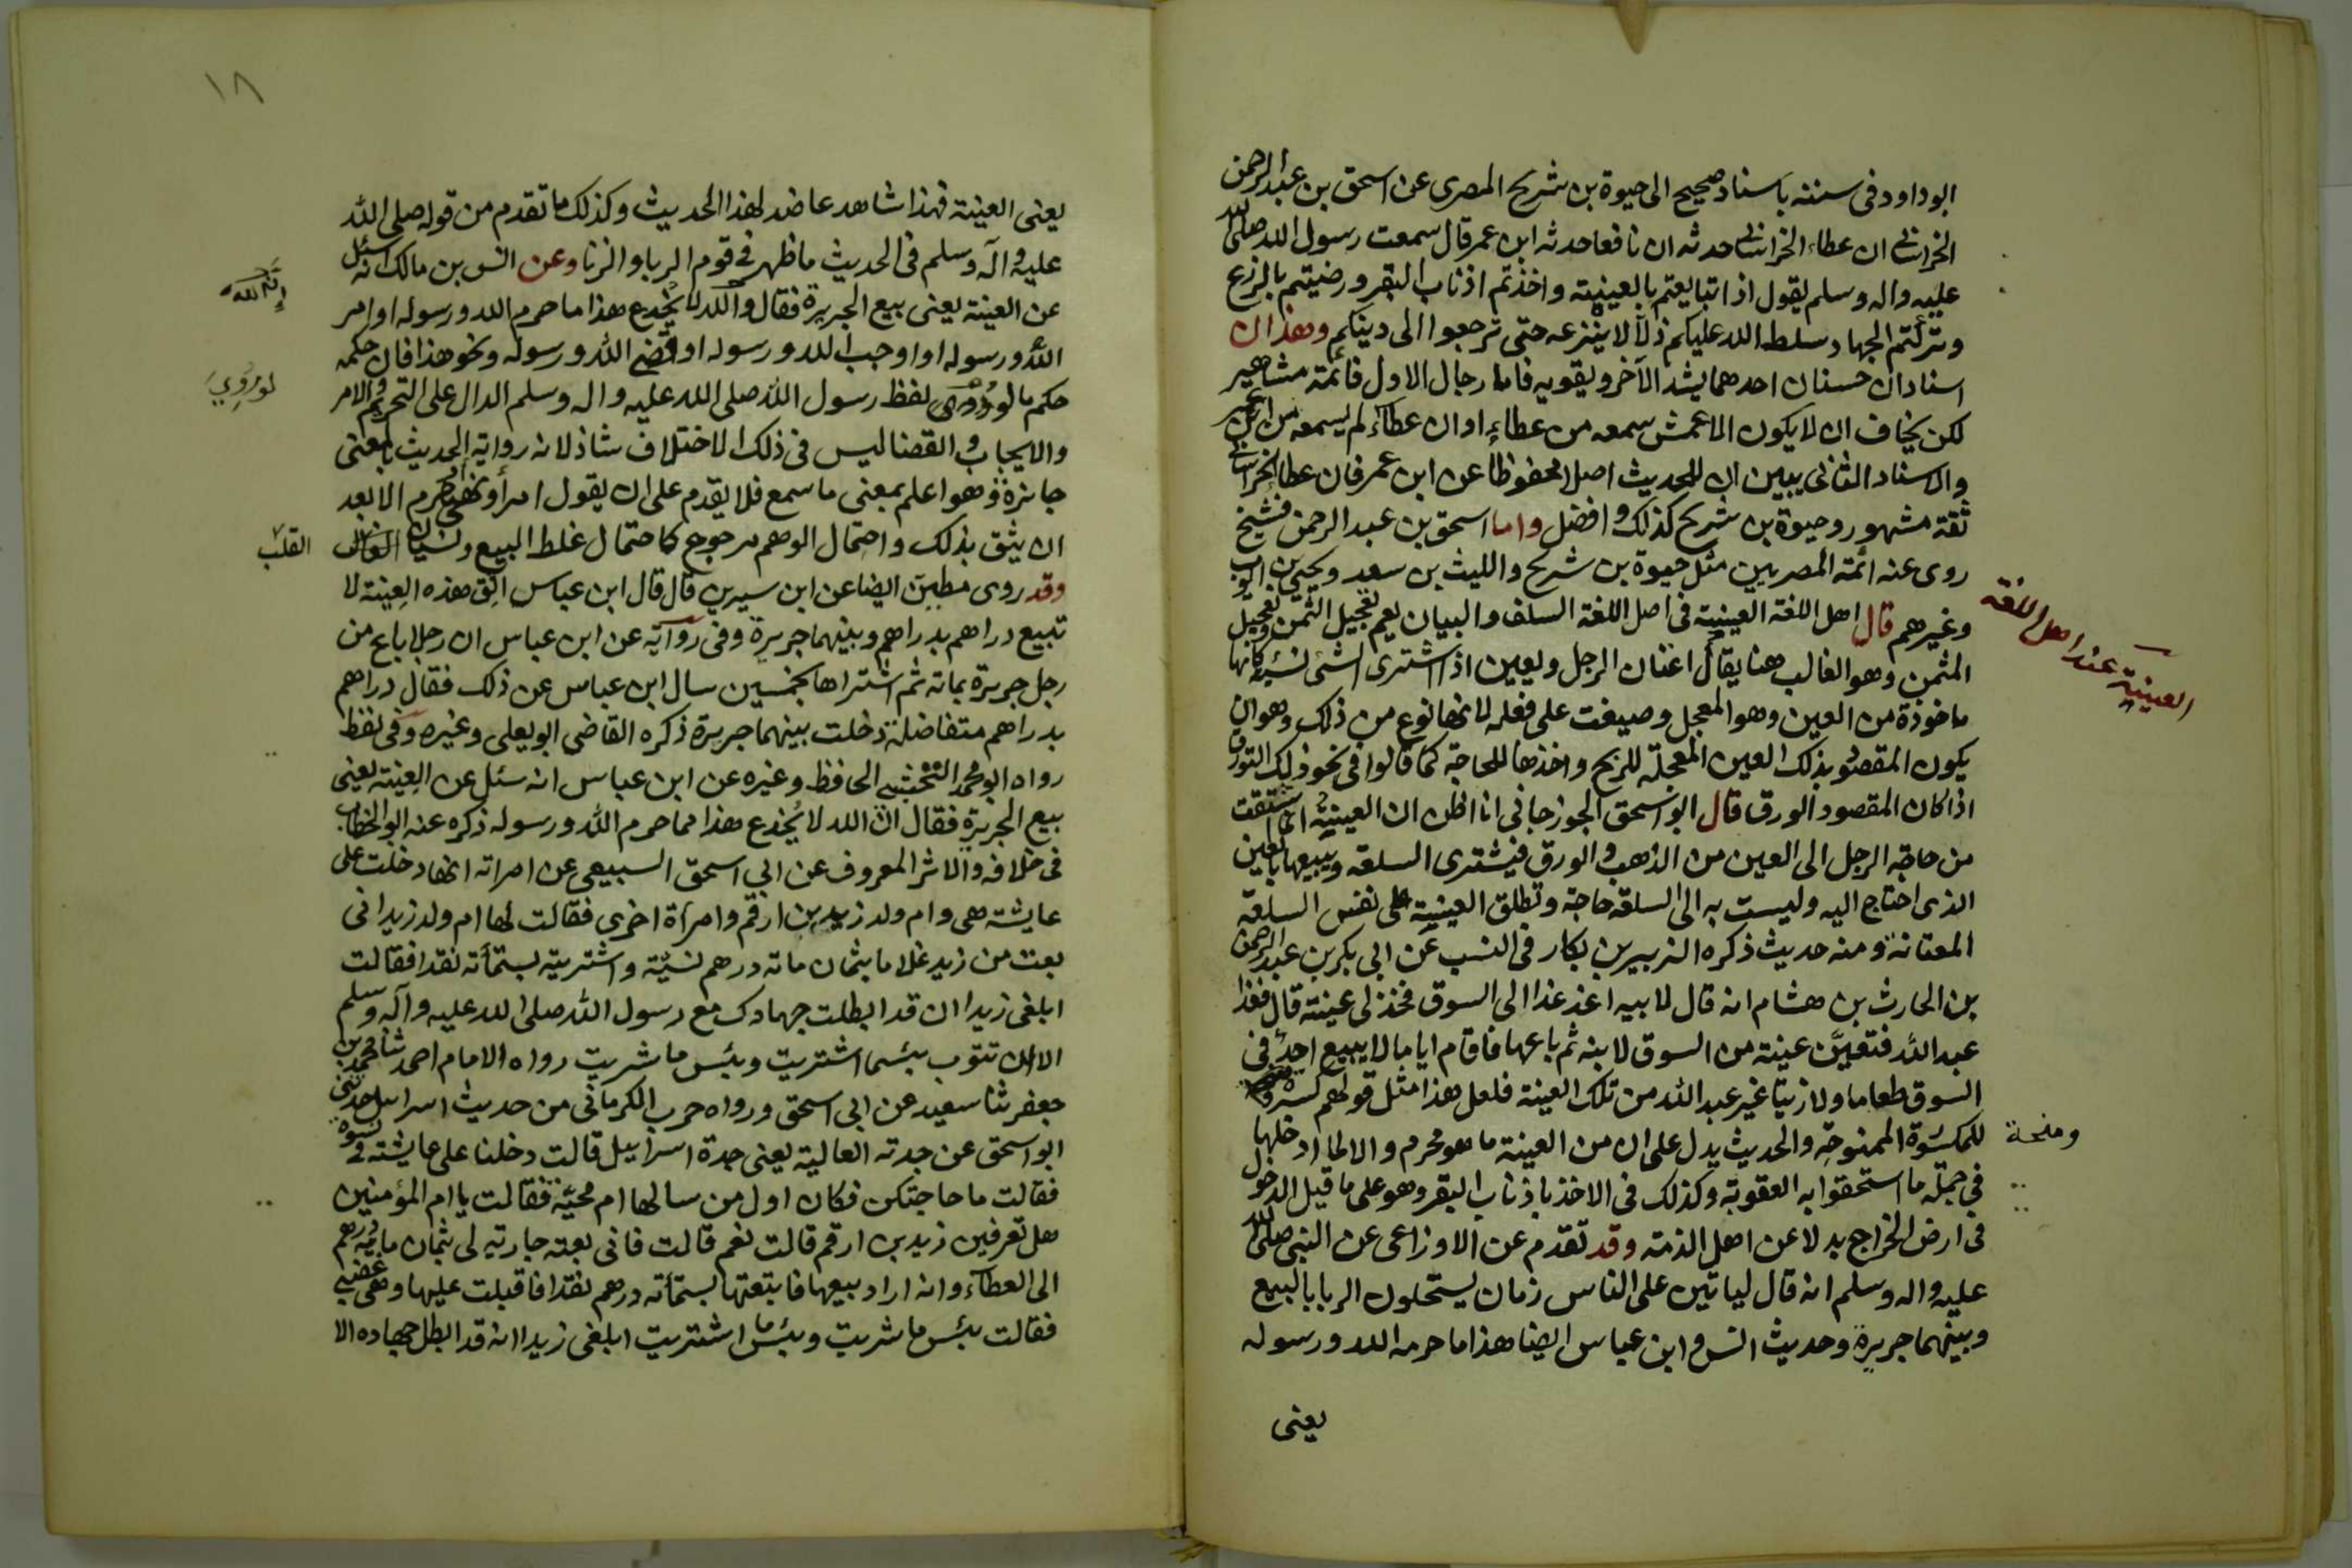 ابوداود فى سننه باسناد صحيح الى حيوة بن شريح المصرى عن اسحق بن عبد الرحمن
الخراسانى ان عطاء الخراسانى حدثه ان نافعا حدثه ابن عمر قال سمعت رسول الله صلى الله
عليه واله وسلم يقول اذا تبايعتم بالعينة واخذتم اذناب البقر ورضيتم بالزرع
وتركتم الجهاد سلط الله عليكم ذلا لا ينزعه حتى ترجعوا الى دينكم وهذان
اسنادان حسنان احدهما يشد الآخر ويقويه فاما رجال الاول فائمة مشاهير
لكن يخاف ان لا يكون الاعمش سمعه من عطاء او ان عطاء لم يسمعه من ابن عمر
والاسناد الثانى يبين ان للحديث اصلا محفوظا عن ابن عمر فان عطا الخراسانى
ثقة مشهور وحيوة بن شريح كذلك وافضل واما اسحق بن عبد الرحمن فشيخ
روى عنه ائمة المصريين مثل حيوة بن شريح والليث بن سعد ويحيى بن ايوب
وغيرهم قال اهل اللغة العينة فى اصل اللغة السلف والبيان يعم تعجيل الثمن وتعجيل
العينة عند اهل اللغة
المثمن وهو الغالب هنا يقال اعتان الرجل وتعين اذا اشترى الشئ نسية كانها
ماخوذة من العين وهو المعجل وصيغت على فعله لانها نوع من ذلك وهو ان
يكون المقصود بذلك العين المعجلة للربح واخذها للحاجة كما قالوا فى نحو ذلك التورق
اذا كان المقصود الورق قال ابو اسحق الجوزجانى انا اظن ان العينة انما اشتقت
من حاجة الرجل الى العين من الذهب والورق فيشترى السلعه ويبيعها بالعين
الذى احتاج اليه وليست به الى السلعة حاجة وتطلق العينة على نفس السلعة
المعتانة ومنه حديث ذكره الزبير بن بكار فى النسب عن ابى بكر بن عبد الرحمن
بن الحارث بن هشام انه قال لابيه اغد غدا الى السوق فخذ لى عينة قال فغدا
عبد الله فتعين عينة من السوق لابنه ثم باعها فاقام اياما لا يبيع احد فى
السوق طعاما ولا زيتا غير عبد الله من تلك العينة فلعل هذا مثل قولهم كسرة
ومنحة
للمكسورة الممنوحة والحديث يدل على ان من العينة ما هو محرم والا لما ادخلها
فى جملة ما استحقوا به العقوبة وكذلك فى الاخذ باذناب البقر وهو على ما قيل الدخول
فى ارض الخراج بدلا عن اهل الذمة وقد تقدم عن الاوزاعى عن النبى صلى الله
عليه واله وسلم انه قال لياتين على الناس زمان يستحلون الربا بالبيع
وبينهما جريرة وحديث انس وابن عباس ايضا هذا ما حرمه الله ورسوله
يعنى
١٨
يعنى العينة فهذا شاهد عاضد لهذا الحديث وكذلك ما تقدم من قوله صلى الله
عليه وآله وسلم فى الحديث ما ظهر فى قوم الربا والزنا وعن انس بن مالك انه سئل
عن العينة يعنى بيع الجريرة فقال والله لا يخدع هذا ما حرم الله ورسوله او امر
إن الله
الله ورسوله او اوجب الله ورسوله او قضى الله ورسوله ونحو هذا فان حكمه
حكم ما لو روى لفظ رسول الله صلى الله عليه واله وسلم الدال على التحريم والامر
لو رُوِيَ
والايجاب والقضا ليس فى ذلك الاختلاف شاذ لانه رواية الحديث بالمعنى
جائزة وهو اعلم بمعنى ما سمع فلا يقدم على ان يقول امر او نهى وحرم الا بعد
ان يثق بذلك واحتمال الوهم مرجوح كاحتمال غلط البيع ونسيان
القلب
وقد روى مطين ايضا عن ابن سيرين قال قال ابن عباس اتق هذه العينة لا
تبيع دراهم بدراهم وبينهما جريرة وفى رواية عن ابن عباس ان رجلا باع من
رجل جريرة بمائة ثم اشتراها بخمسين سال ابن عباس عن ذلك فقال دراهم
بدراهم متفاضلة دخلت بينهما جريرة ذكره القاضى ابو يعلى وغيره وفى لفظ
رواه ابو محمد النخشبى الحافظ وغيره عن ابن عباس انه سئل عن العينة يعنى
بيع الجريرة فقال ان الله لا يُخدع هذا مما حرم الله ورسوله ذكره عنه ابو الخطاب
فى خلافه والاثر المعروف عن ابى اسحق السبيعى عن امراته انها دخلت على
عايشة هى وام ولد زيد بن ارقم وامراة اخرى فقالت لها ام ولد زيد انى
بعت من زيد غلاما بثمان مائة درهم نسيئة واشتريته بستمائة نقدا فقالت
ابلغى زيدا ان قد ابطلت جهادك مع رسول الله صلى الله عليه وآله وسلم
الا ان تتوب بئسما اشتريت وبئس ما شريت رواه الامام احمد ثنا محمد بن
جعفر ثنا سعيد عن ابى اسحق ورواه حرب الكرمانى من حديث اسرائيل حدثنى
ابو اسحق عن جدته العالية يعنى جدة اسرائيل قالت دخلنا على عايشة فى نسوة
فقالت ما حاجتكن فكان اول من سالها ام محبة فقالت يا ام المؤمنين
هل تعرفين زيد بن ارقم قالت نعم قالت فانى بعته جارية لى بثمان مائة درهم
الى العطآء وانه اراد بيعها فابتعتها بستمائة درهم نقدا فاقبلت عليها وهى غضبى
فقالت بئس ما شريت وبئس ما اشتريت ابلغى زيدا انه قد ابطل جهاده الا